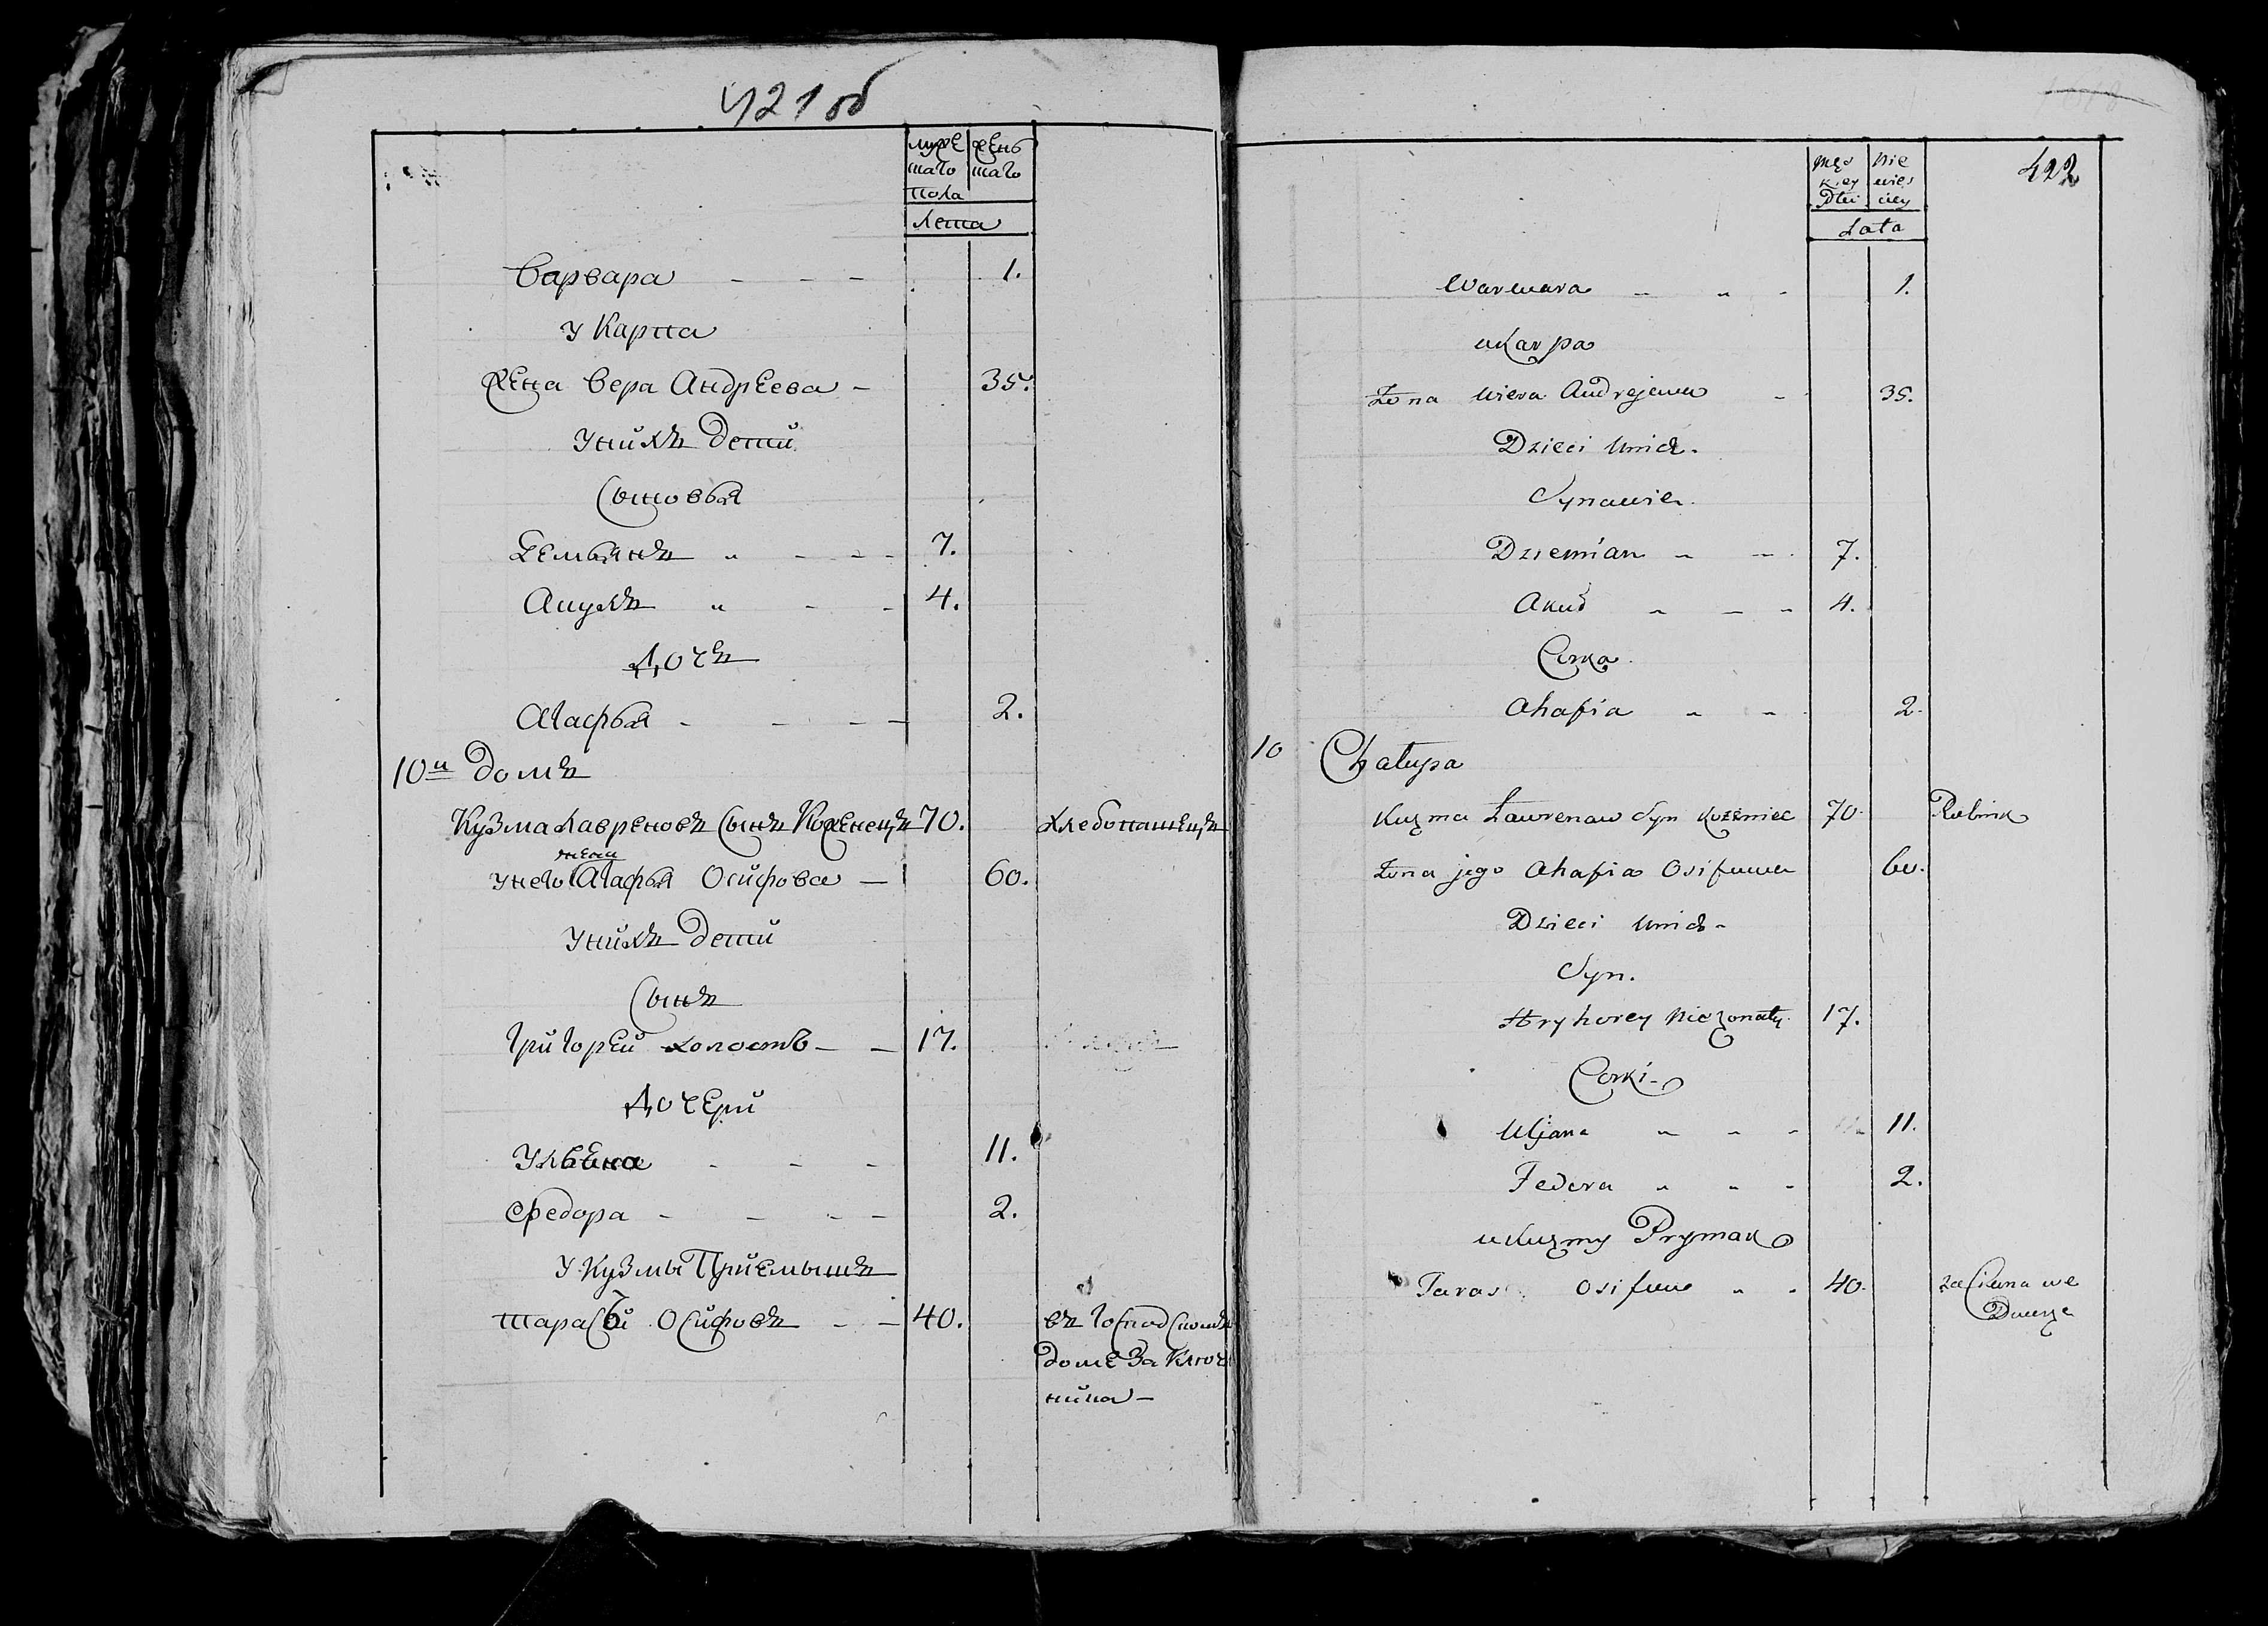 421 об
муже жень
скаго скаго
пола
Лета
Варвара - - - 1.
у Карпа
Жена Вера Андреева - 35.
у нихъ дети
Сыновья
Демьянъ " - - - 7.
Якубъ " - - 4.
Дочь
Агафья - - - - 2.
10й домъ
Кузма Лавреновъ Сынъ 70. хлебопашецъ
жена
у него Агафья Осифова - 60.
у нихъ дети
Сынъ
Григорей холостъ - - 17.
Дочери
Ульяна - - - 11.
Федора - - - - 2.
у Кузмы Приемышъ
Тарасъ Осифовъ - - 40. въ Господскомъ
доме за Ключ
ника -
422
Męs Nie
kiey wies
Płci ciey
Lata
Warwara - " - 1.
u Karpa
Żona Wiera Andrejewa - 35.
Dzieci u nich.
Synowie.
Dziemian - - 7.
Akub - - - 4.
Corka.
Ahafia - - 2.
10 Chałupa
Kuzma Ławrenow Syn 70. Rolnik
Żona jego Ahafia Osifowa 60.
Dzieci u nich -
Syn.
Hryhorey Nieżonaty 17.
Corki -
Uljana - - - 11.
Fedora - - - 2.
u Kuzmy Prymak
Taras Osifow " - 40. za we
Dworze